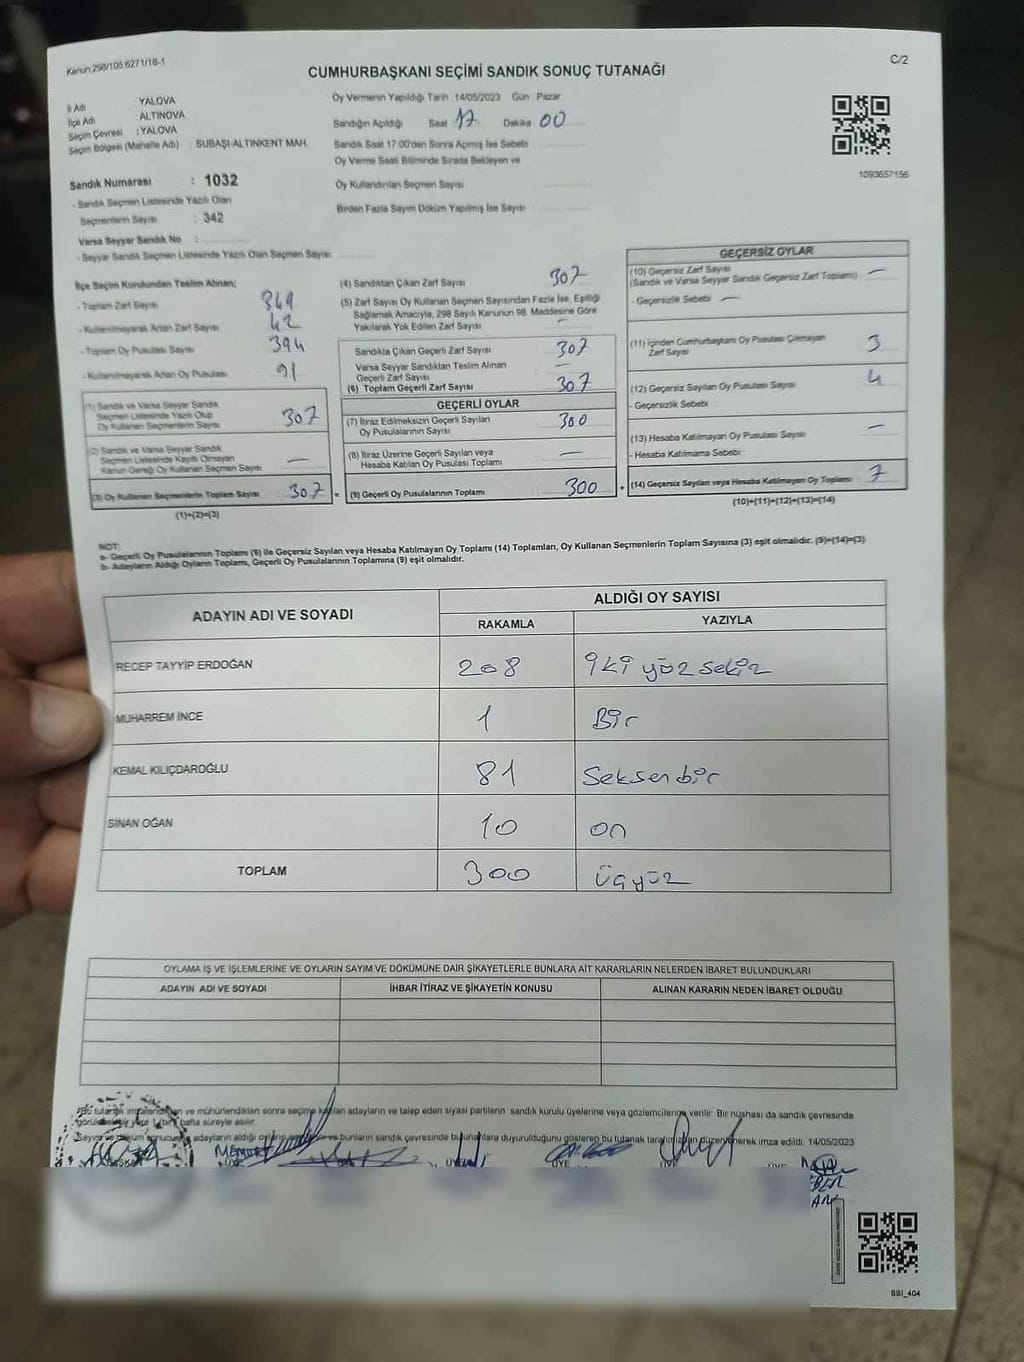 Kanun:298/105,6271/18-1
C/2
CUMHURBAŞKANI SEÇİMİ SANDIK SONUÇ TUTANAĞI
İl Adı : YALOVA
İlçe Adı : ALTINOVA
Seçim Çevresi : YALOVA
Seçim Bölgesi (Mahalle Adı) : SUBAŞI-ALTINKENT MAH.
Sandık Numarası : 1032
- Sandık Seçmen Listesinde Yazılı Olan
Seçmenlerin Sayısı : 342
Varsa Seyyar Sandık No :
- Seyyar Sandık Seçmen Listesinde Yazılı Olan Seçmen Sayısı:
Oy Vermenin Yapıldığı Tarih : 14/05/2023 Gün : Pazar
Sandığın Açıldığı Saat 17 Dakika 00
Sandık Saat 17:00'den Sonra Açılmış İse Sebebi
Oy Verme Saati Bitiminde Sırada Bekleyen ve
Oy Kullandırılan Seçmen Sayısı
Birden Fazla Sayım Döküm Yapılmış İse Sayısı
1093657156
İlçe Seçim Kurulundan Teslim Alınan;
- Toplam Zarf Sayısı 349
- Kullanılmayarak Artan Zarf Sayısı 42
- Toplam Oy Pusulası Sayısı 394
- Kullanılmayarak Artan Oy Pusulası 91
(1) Sandık ve Varsa Seyyar Sandık
Seçmen Listesinde Yazılı Olup
Oy Kullanan Seçmenlerin Sayısı 307
(2) Sandık ve Varsa Seyyar Sandık
Seçmen Listesinde Kayıtlı Olmayan
Kanun Gereği Oy Kullanan Seçmen Sayısı —
(3) Oy Kullanan Seçmenlerin Toplam Sayısı 307 =
(1)+(2)=(3)
(4) Sandıktan Çıkan Zarf Sayısı 307
(5) Zarf Sayısı Oy Kullanan Seçmen Sayısından Fazla İse, Eşitliği
Sağlamak Amacıyla, 298 Sayılı Kanunun 98. Maddesine Göre
Yakılarak Yok Edilen Zarf Sayısı —
Sandıkta Çıkan Geçerli Zarf Sayısı 307
Varsa Seyyar Sandıktan Teslim Alınan
Geçerli Zarf Sayısı —
(6) Toplam Geçerli Zarf Sayısı 307
GEÇERLİ OYLAR
(7) İtiraz Edilmeksizin Geçerli Sayılan
Oy Pusulalarının Sayısı 300
(8) İtiraz Üzerine Geçerli Sayılan veya
Hesaba Katılan Oy Pusulası Toplamı —
(9) Geçerli Oy Pusulalarının Toplamı 300 +
GEÇERSİZ OYLAR
(10) Geçersiz Zarf Sayısı
(Sandık ve Varsa Seyyar Sandık Geçersiz Zarf Toplamı) —
- Geçersizlik Sebebi —
(11) İçinden Cumhurbaşkanı Oy Pusulası Çıkmayan
Zarf Sayısı 3
(12) Geçersiz Sayılan Oy Pusulası Sayısı 4
- Geçersizlik Sebebi
(13) Hesaba Katılmayan Oy Pusulası Sayısı —
- Hesaba Katılmama Sebebi :
(14) Geçersiz Sayılan veya Hesaba Katılmayan Oy Toplamı 7
(10)+(11)+(12)+(13)=(14)
NOT:
a- Geçerli Oy Pusulalarının Toplamı (9) ile Geçersiz Sayılan veya Hesaba Katılmayan Oy Toplamı (14) Toplamları, Oy Kullanan Seçmenlerin Toplam Sayısına (3) eşit olmalıdır. (9)+(14)=(3)
b- Adayların Aldığı Oyların Toplamı, Geçerli Oy Pusulalarının Toplamına (9) eşit olmalıdır.
ADAYIN ADI VE SOYADI ALDIĞI OY SAYISI
RAKAMLA YAZIYLA
RECEP TAYYİP ERDOĞAN 208 iki yüz sekiz
MUHARREM İNCE 1 Bir
KEMAL KILIÇDAROĞLU 81 Seksen bir
SİNAN OĞAN 10 on
TOPLAM 300 üçyüz
OYLAMA İŞ VE İŞLEMLERİNE VE OYLARIN SAYIM VE DÖKÜMÜNE DAİR ŞİKAYETLERLE BUNLARA AİT KARARLARIN NELERDEN İBARET BULUNDUKLARI
ADAYIN ADI VE SOYADI İHBAR İTİRAZ VE ŞİKAYETİN KONUSU ALINAN KARARIN NEDEN İBARET OLDUĞU
ve mühürlendikten sonra seçime katılan adayların ve talep eden siyasi partilerin sandık kurulu üyelerine veya gözlemcilerine verilir. Bir nüshası da sandık çevresinde
hafta süreyle asılır.
adayların aldığı bunların sandık çevresinde bulunanlara duyurulduğunu gösteren bu tutanak tarafımızdan düzenlenerek imza edildi. 14/05/2023
ÜYE
SSI_404